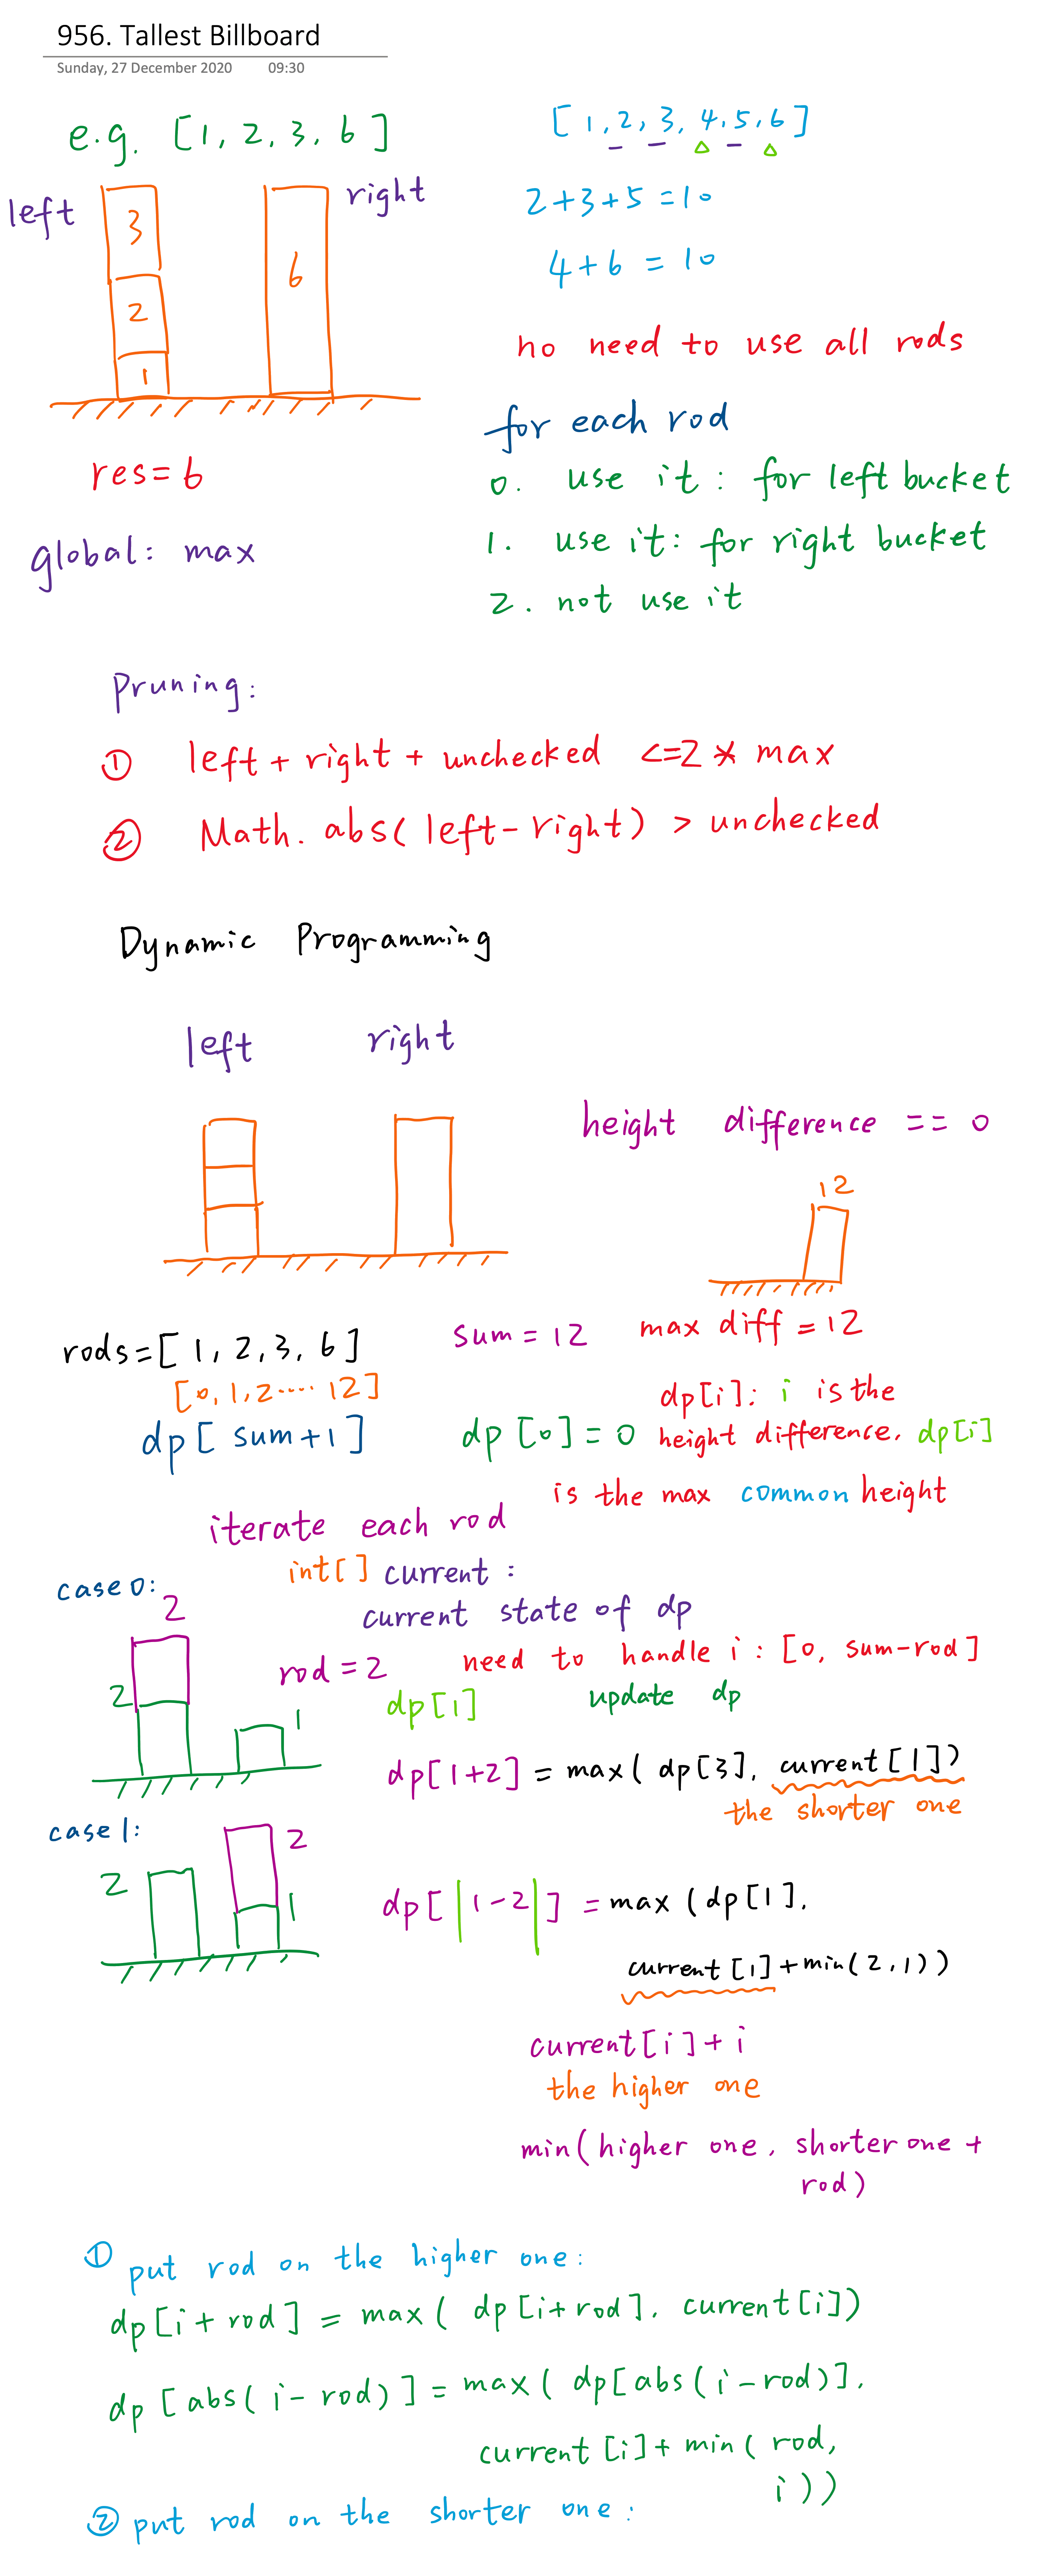 956. Tallest Billboard
Sunday, 27 December 2020 09:30
e.g. [1, 2, 3, 6]
[1, 2, 3, 4, 5, 6]
left
right
3
2
1
6
2+3+5=10
4+6 = 10
no need to use all rods
res=6
global: max
for each rod
0. use it: for left bucket
1. use it: for right bucket
2. not use it
Pruning:
① left + right + unchecked <=2 * max
② Math.abs(left-right) > unchecked
Dynamic Programming
left right
height difference == 0
12
rods=[1, 2, 3, 6] sum = 12 max diff = 12
[0, 1, 2 ..... 12]
dp[sum+1] dp[0]=0
dp[i]: i is the
height difference, dp[i]
is the max common height
iterate each rod
int[] current:
current state of dp
case 0:
2
2
1
rod = 2
need to handle i: [0, sum-rod]
dp[1] update dp
dp[1+2] = max( dp[3], current[1])
the shorter one
case 1:
2
2
1
dp[|1-2|] = max (dp[1],
current[1] + min(2,1))
current[i] + i
the higher one
min(higher one, shorter one +
rod)
① put rod on the higher one:
dp[i+rod] = max( dp[i+rod], current[i])
dp[abs(i-rod)] = max( dp[abs(i-rod)],
current[i] + min( rod,
i))
② put rod on the shorter one: